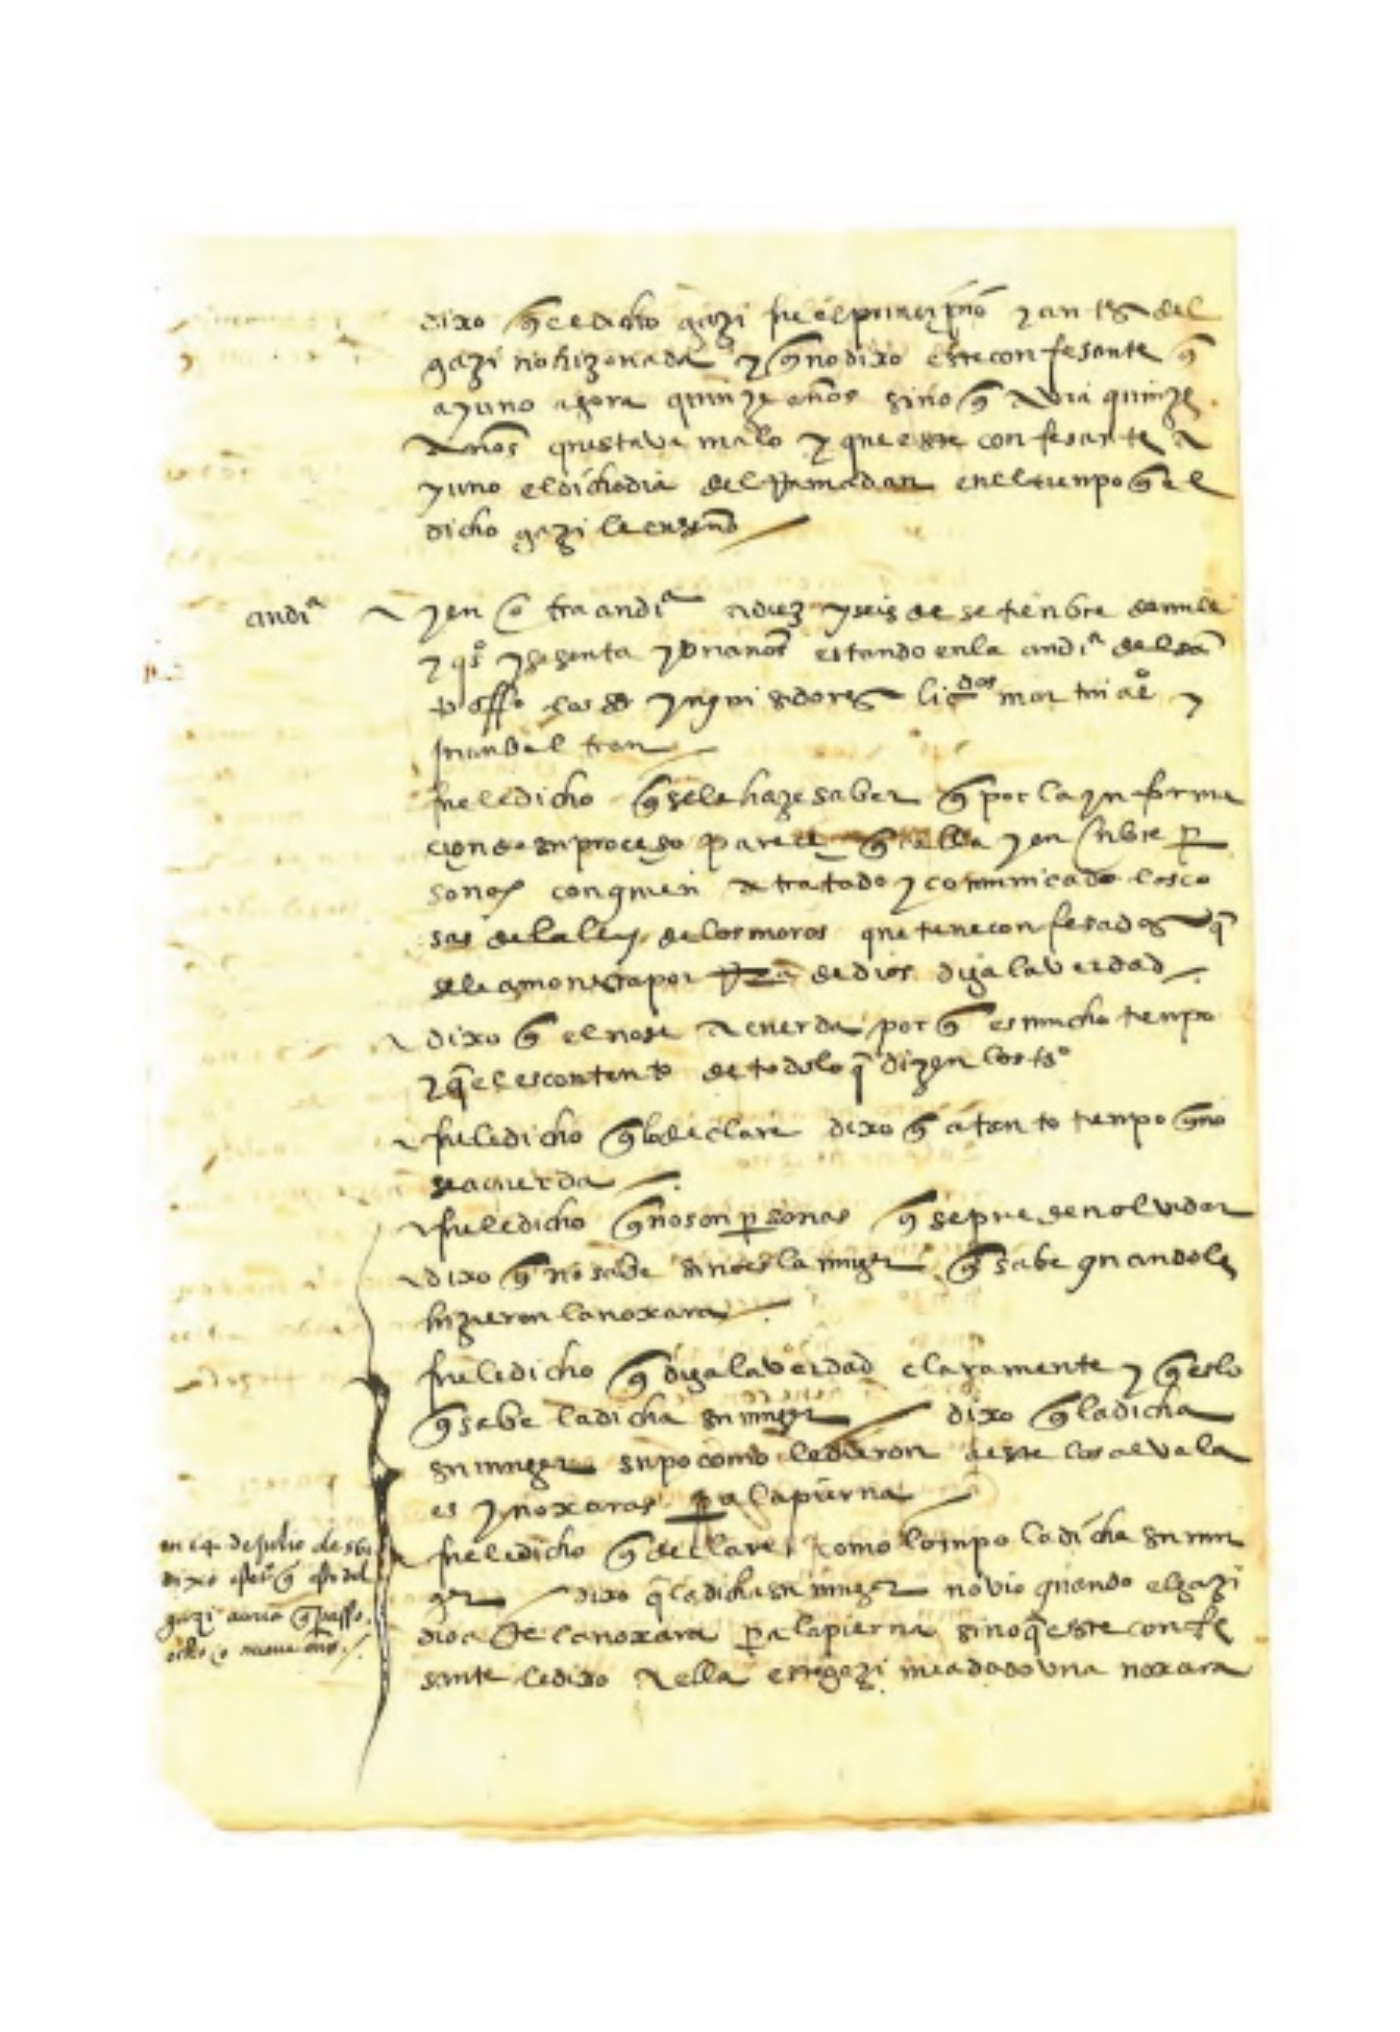 dixo q̃ el dicho gazi fue el prinçipio y antes del
gazi no hizo nada y q̃ no dixo este confesante q̃
ayuno agora quinze años sino q̃ avia quinze
años questava malo y que este confesante a
yuno el dicho dia del Ramadan en el tienpo q̃ el
dicho gazi le enseño
audiª
y en otra audiª a diez y seis de setienbre de mill
y qºs y sesenta y un años estando en la audiª del sã
to offº los ss ynquisidores liçdos martin aº y
Juan beltran
fuele dicho q̃ se le haze saber q̃ por la ynforma
cion de su proceso pareçe q̃ ella y en
sonas con quien a tratado y comunicado las co
sas de la ley de los moros que tiene confesados q̃
se le amonesta por de dios diga la verdad
dixo q̃ el no se acuerda porq̃ es mucho tienpo
y q̃ el es contento de todo lo q̃ dizen los tsº
fuele dicho q̃ lo declare dixo q̃ a tanto tienpo q̃ no
se acuerda
fuele dicho q̃ no son psonas q̃ se pueden olvidar
dixo q̃ no sabe sino es la muger q̃ sabe quando le
hizieron la noxara
fuele dicho q̃ diga la verdad claramente y q̃ es lo
q̃ sabe la dicha su muger dixo q̃ la dicha
su muger supo como le dieron a este los alvala
es y noxaras pa la pierna
fuele dicho q̃ declare como lo supo la dicha su mu
ger dixo q̃ la dicha su muger no vio quando el gazi
dio a este la noxara pa la pierna sino q̃ este confe
sante le dixo a ella este gazi me a dado una noxara
en 14 de julio de 561
dixo q̃ esto del
gazi avria q̃ passo
ocho o nueve años